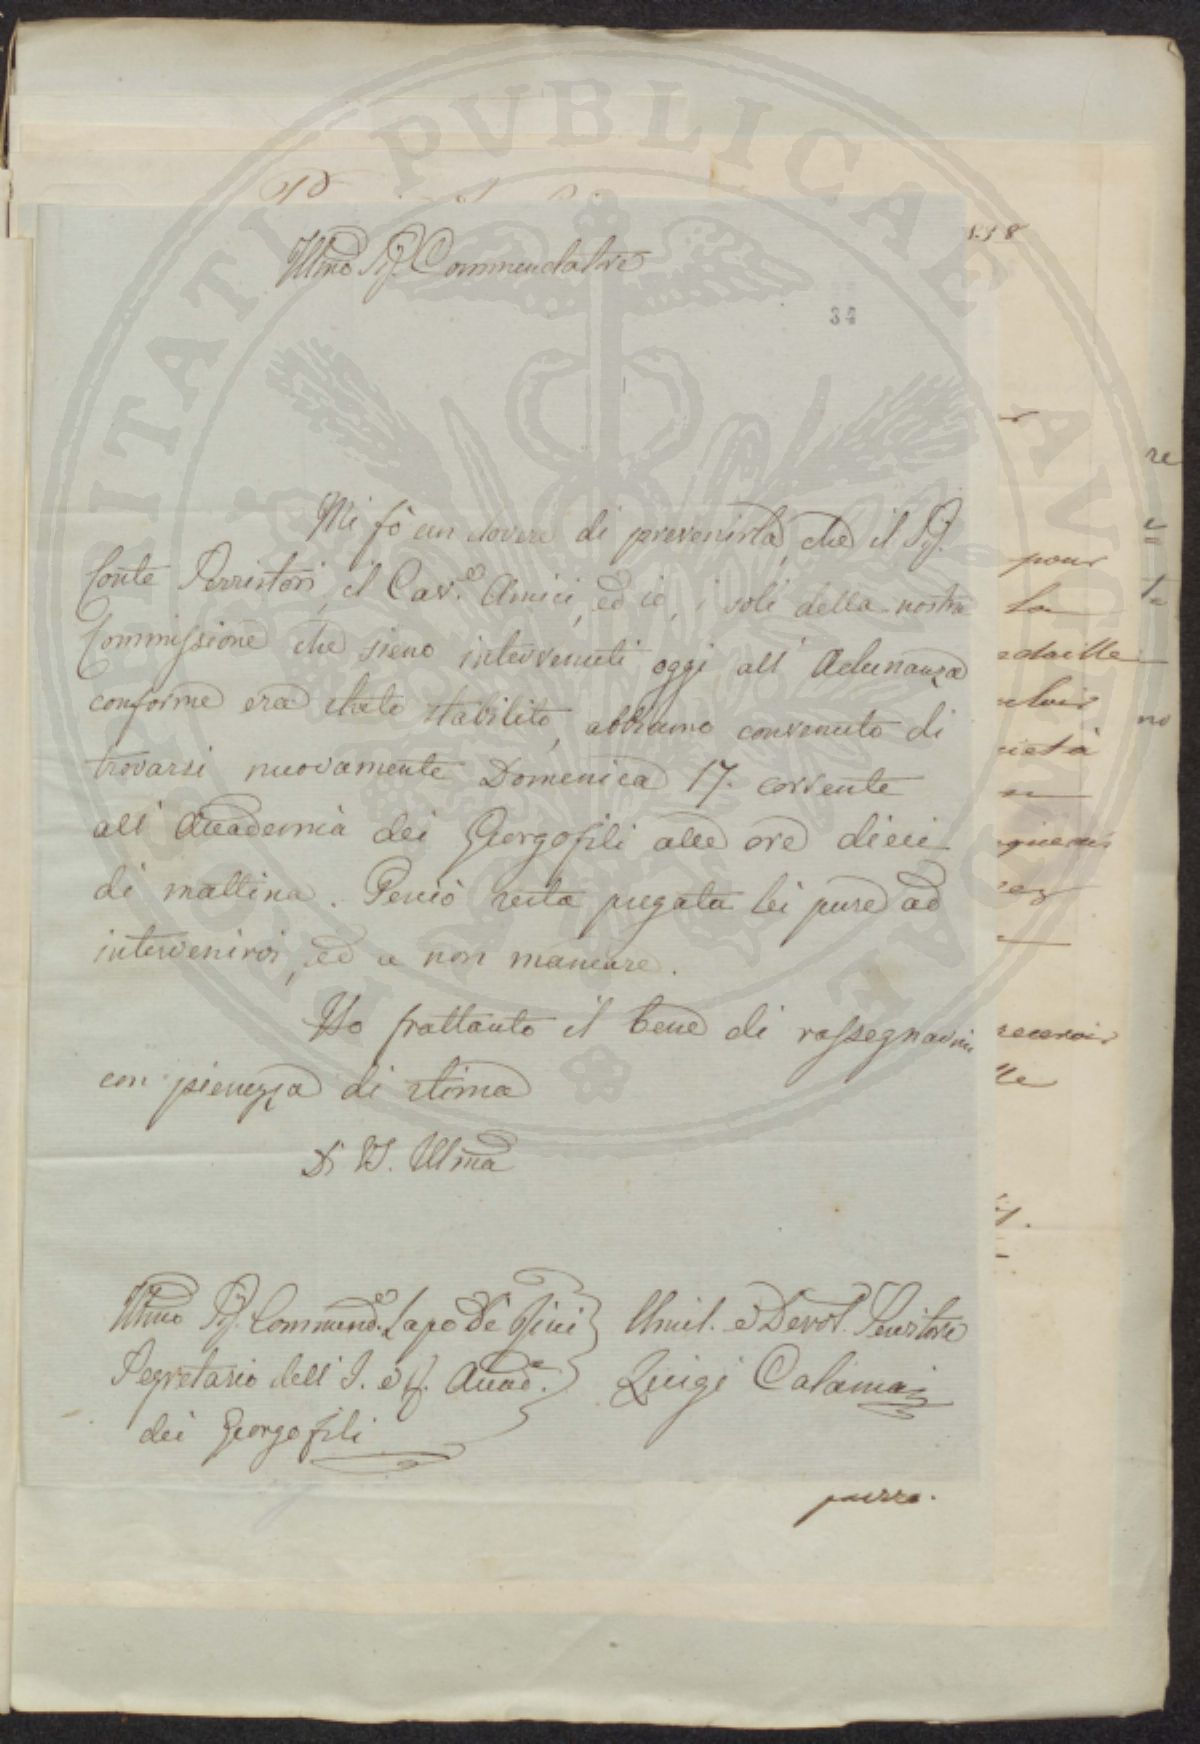 Illmo Sig. Commendatore
34
Mi fò un dovere di prevenirla, che il Sig.
Conte Serristori, il Cav.e Amici, ed io, i soli della nostra
Commissione che sieno intervenuti oggi all' Adunanza
conforme era stato stabilito, abbiamo convenuto di
trovarsi nuovamente Domenica 17. corrente
all' Accademia dei Georgofili alle ore dieci
di mattina. Perciò resta pregata Lei pure ad
intervenirvi, ed a non mancare.
Ho frattanto il bene di rassegnarmi
con pienezza di stima
Di V.S. Illma
Illmo Sig. Commend.e Lapo De' Ricci
Segretario dell' I. e R. Accad.e
dei Georgofili
Umil. e Devot. Servitore
Luigi Calamai
pour
la
recevoir
PUBLICAE